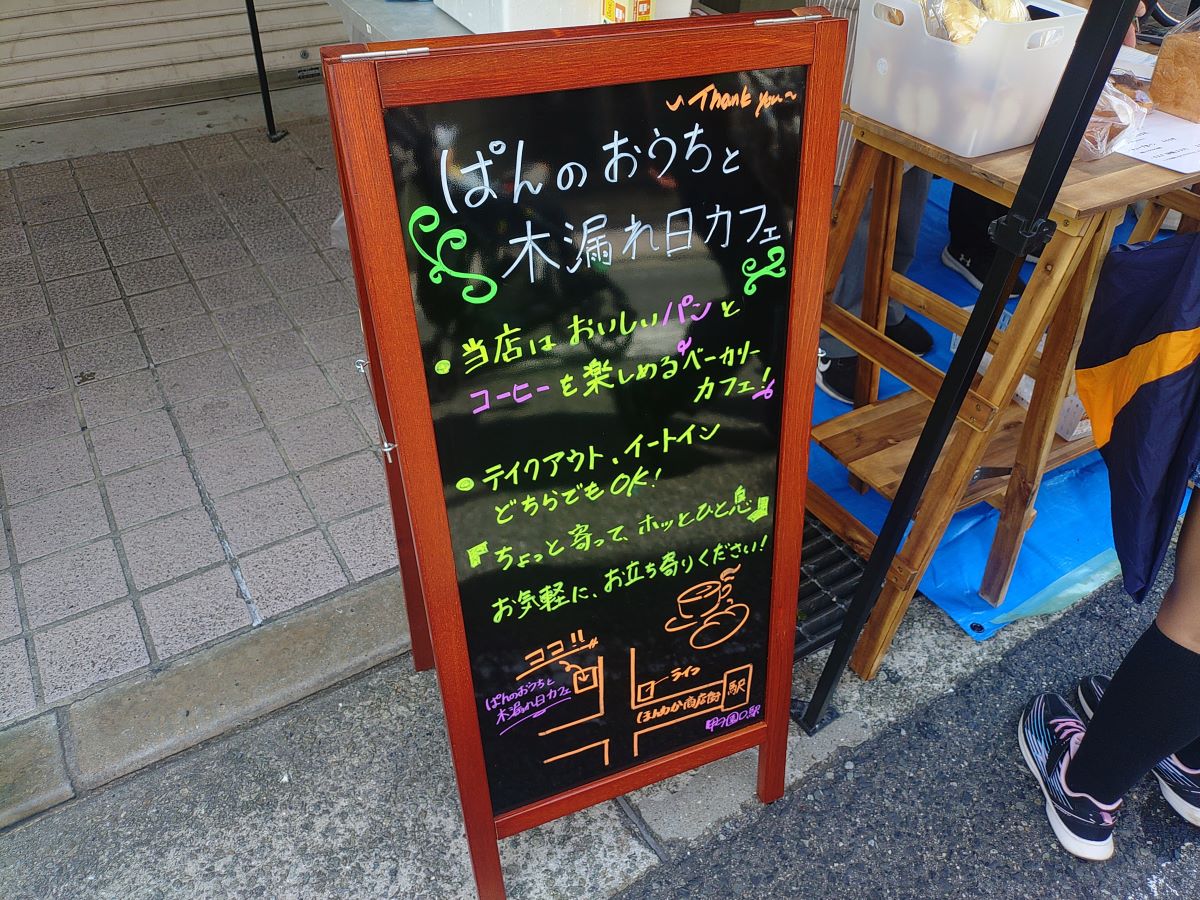 ~Thank you~
ぱんのおうちと
木漏れ日カフェ
・当店はおいしいパンと
コーヒーを楽しめるベーカリー
カフェ!
・テイクアウト、イートイン
どちらでもOK!
『ちょっと寄って、ホッとひと息』
お気軽に、お立ち寄りください!
ココ!!
ぱんのおうちと
木漏れ日カフェ
ライフ
ほんわか商店街
駅
甲子園口駅